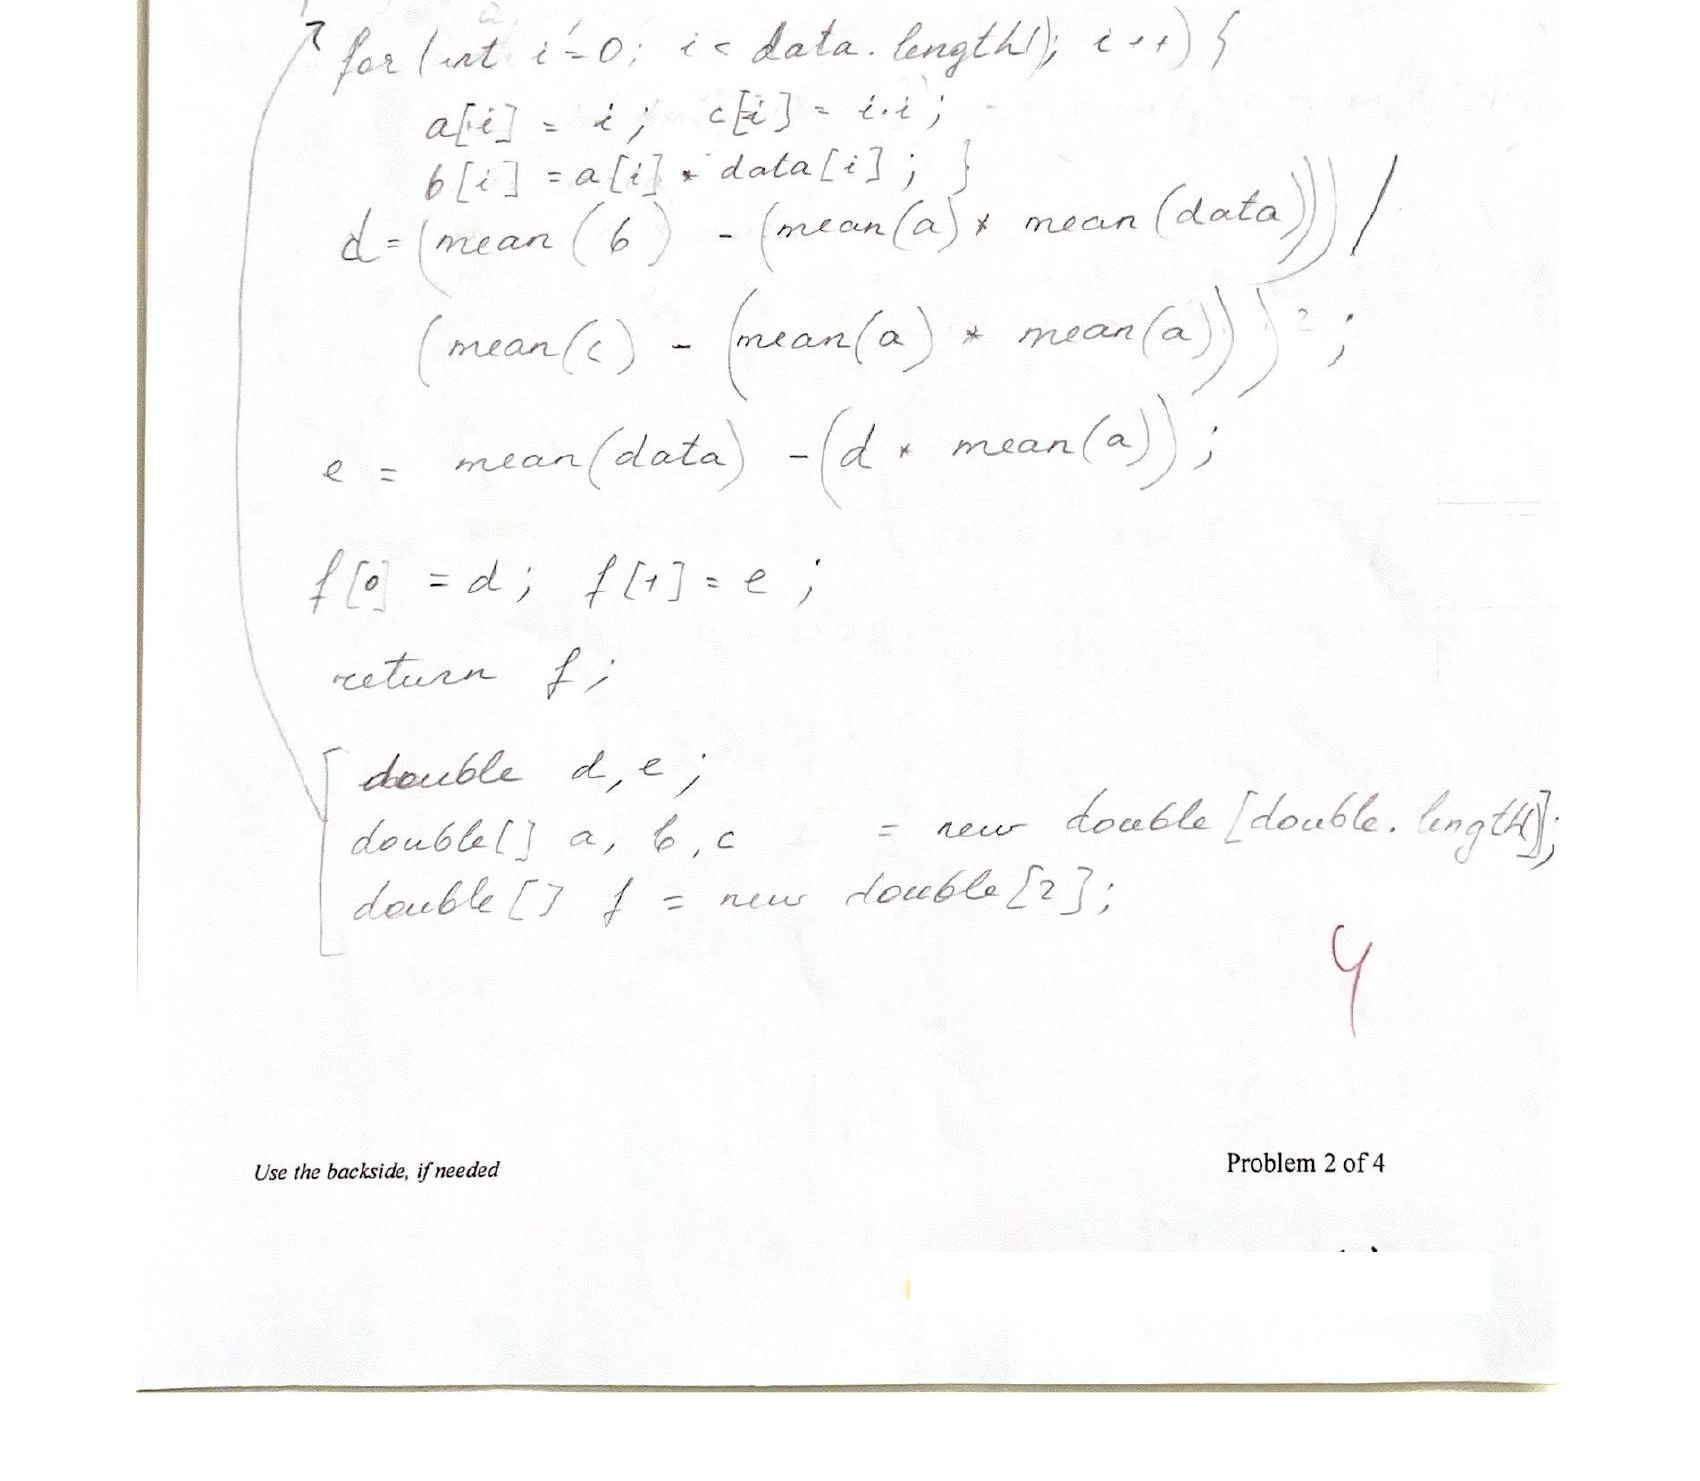 for (int i=0; i < data.length(); i++) {
a[i] = i; c[i] = i·i;
b[i] = a[i] * data[i]; }
d = (mean(b) - (mean(a) * mean(data))) /
(mean(c) - (mean(a) * mean(a)))²;
e = mean(data) - (d * mean(a));
f[0] = d; f[1] = e;
return f;
double d, e;
double[] a, b, c = new double[double.length()];
double[] f = new double[2];
4
Use the backside, if needed
Problem 2 of 4